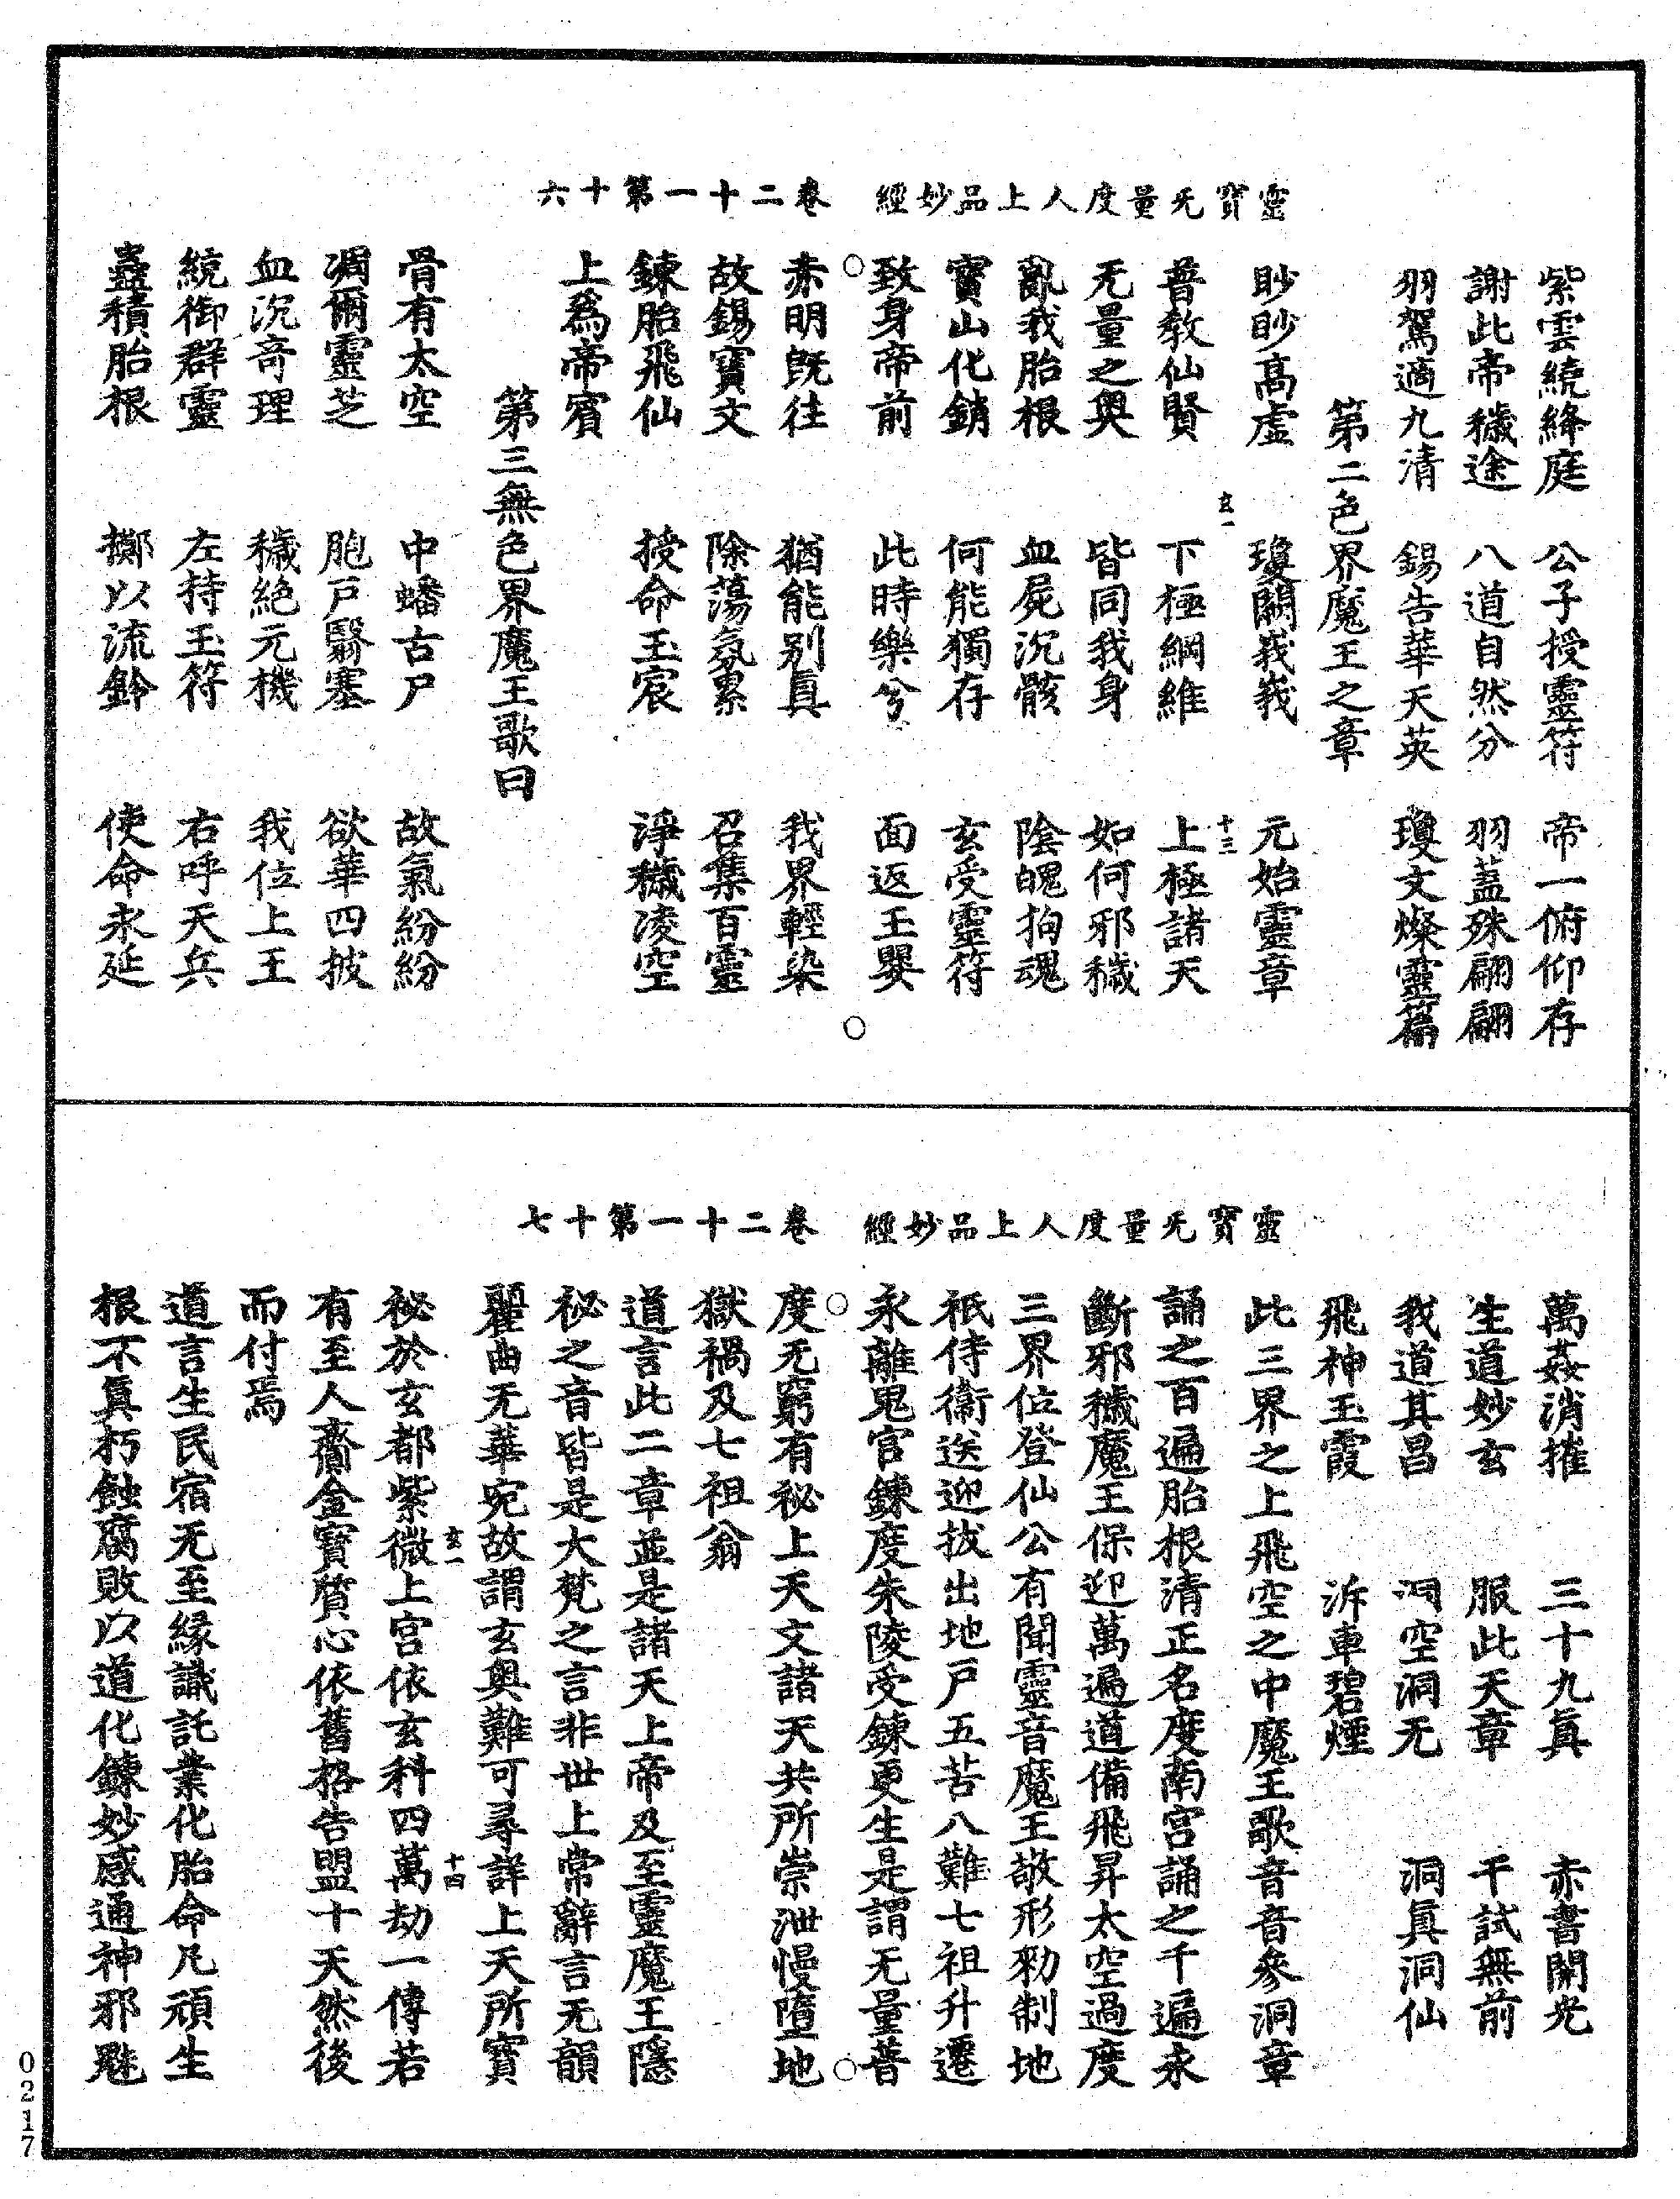 靈寶无量度人上品妙經　卷二十一第十六
紫雲繞絳庭　公子授靈符　帝一俯仰存
謝此帝穢途　八道自然分　羽蓋殊翩翩
羽駕適九清　錫告華天英　瓊文燦靈篇
第二色界魔王之章
眇眇高虛　瓊闕峩峩　元始靈章
玄一　十三
普教仙賢　下極綱維　上極諸天
无量之奧　皆同我身　如何邪穢
亂我胎根　血屍沉骸　陰魄拘魂
寶山化銷　何能獨存　玄受靈符
致身帝前　此時樂兮　面返王嬰
赤明旣往　猶能別眞　我界輕染
故錫寶文　除蕩氛累　召集百靈
鍊胎飛仙　授命玉宸　淨穢凌空
上爲帝賓
第三無色界魔王歌曰
骨有太空　中蟠古尸　故氣紛紛
凋爾靈芝　胞戶翳塞　欲華四披
血沉奇理　穢絶元機　我位上王
統御群靈　左持玉符　右呼天兵
蠱積胎根　擲以流鈴　使命永延
靈寶无量度人上品妙經　卷二十一第十七
萬姦消摧　三十九眞　赤書開光
生道妙玄　服此天章　千試無前
我道其昌　洞空洞无　洞眞洞仙
飛神玉霞　泝車碧煙
此三界之上飛空之中魔王歌音音參洞章
誦之百遍胎根清正名度南宮誦之千遍永
斷邪穢魔王保迎萬遍道備飛昇太空過度
三界位登仙公有聞靈音魔王敬形勑制地
祇侍衞送迎拔出地戶五苦八難七祖升遷
永離鬼官鍊度朱陵受鍊更生是謂无量普
度无窮有祕上天文諸天共所崇泄慢墮地
獄禍及七祖翁
道言此二章並是諸天上帝及至靈魔王隱
祕之音皆是大梵之言非世上常辭言无韻
麗曲无華宛故謂玄奧難可尋詳上天所寶
玄一　十四
祕於玄都紫微上宮依玄科四萬劫一傳若
有至人齎金寶質心依舊格告盟十天然後
而付焉
道言生民宿无至緣識託業化胎命凡頑生
根不眞朽蝕腐敗以道化鍊妙感通神邪魁
0217